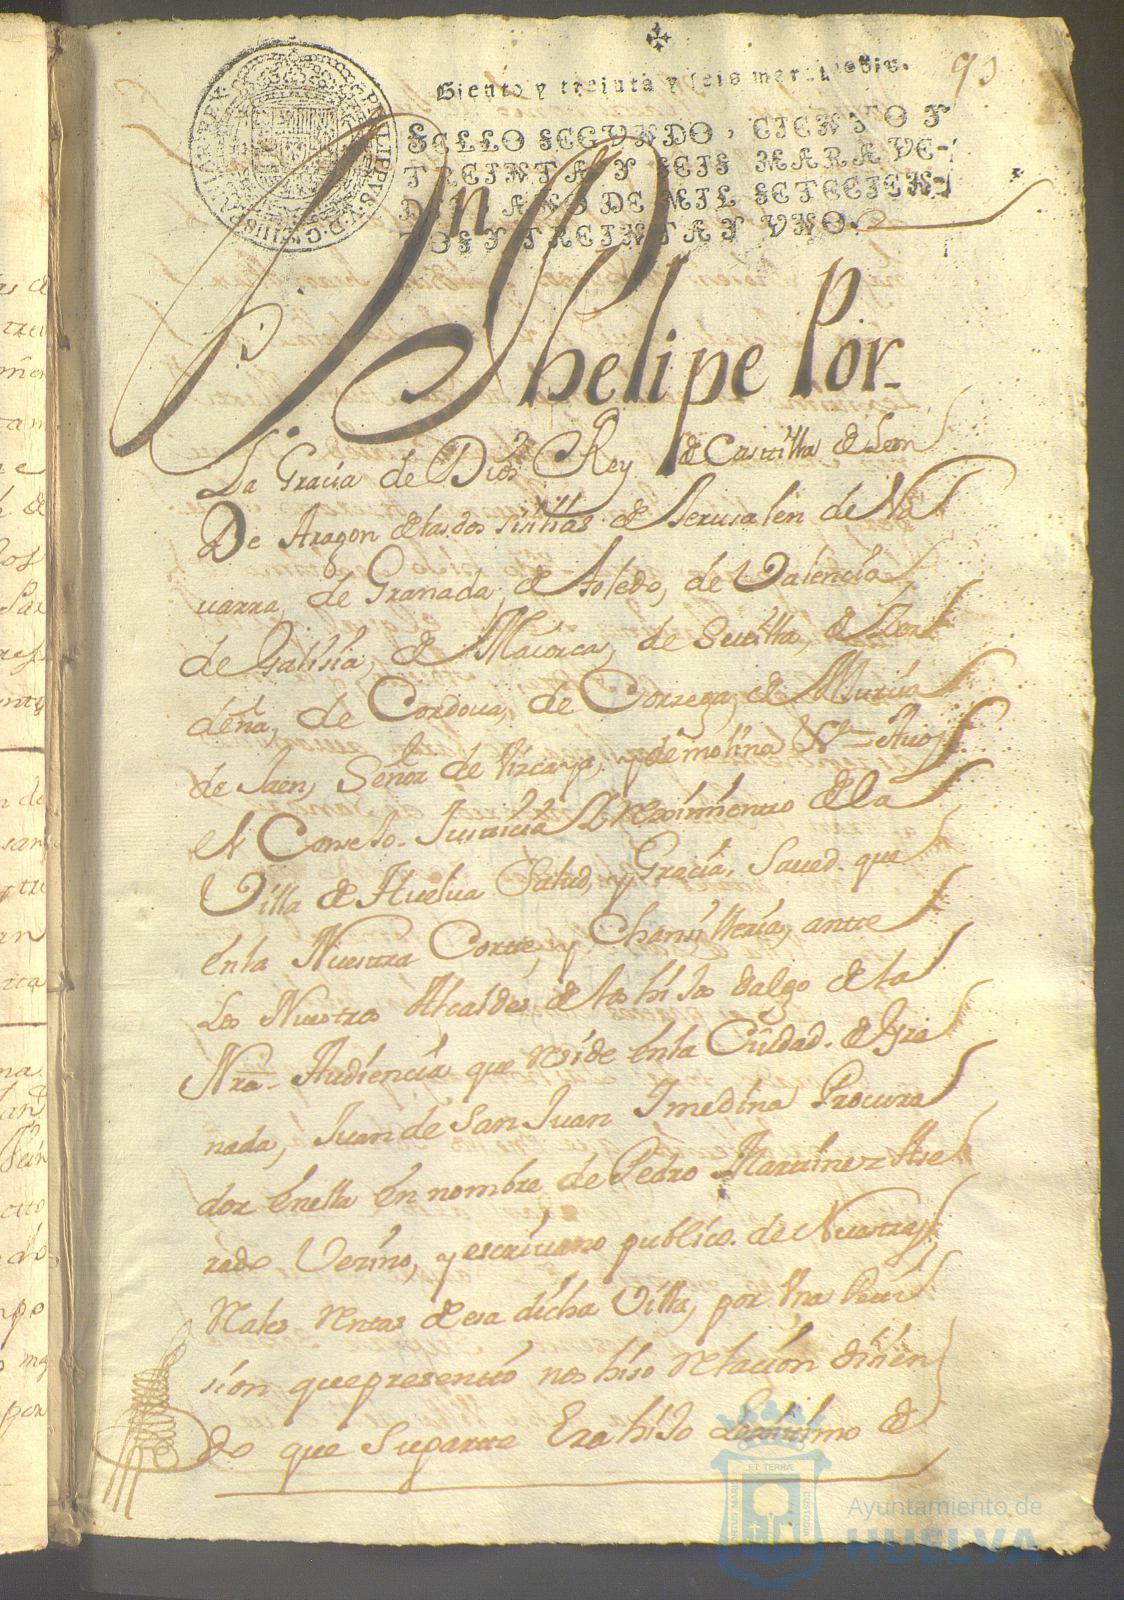 93
Siento y treinta y seis maravedis.
SELLO SEGVNDO, CIENTO Y
TREINTA Y SEIS MARAVE-
DIS, AÑO DE MIL SETECIEN-
TOS Y TREINTA Y VNO.
PHILIPPVS V D G
Dn Phelipe Por
La Gracia de Dios Rey de Castilla de Leon
De Aragon delas dos sisilias de Jerusalen de Na
uarra, de Granada, de toledo, de Valencia
de Galisia, de Maiorca, de Seuilla, de Cer
deña, de Cordoua, de Corsega, de Mursia
de Jaen, Señor de Viscaya, y de molina Vª A uos
el Conseso Justicia y reximiento de la
Villa de Huelua Salud, y Gracia, Saued. que
en la Nuestra Corte, y Chansilleria, ante
Los Nuestros Alcaldes de los hijos dalgo de la
Nra. Audiencia que reside en la Ciudad. de Gra
nada, Juan de San Juan Y medina Procura
dor en ella en nombre de Pedro Martinez
rado Vesino, y escriuano publico. de Nuestras
Rales Rentas de esa dicha Villa, por Vna Peti
sion que presentó nos hiso Relacion disien
do que Suparte Era hijo Lexitimo de
Ayuntamiento de
HUELVA